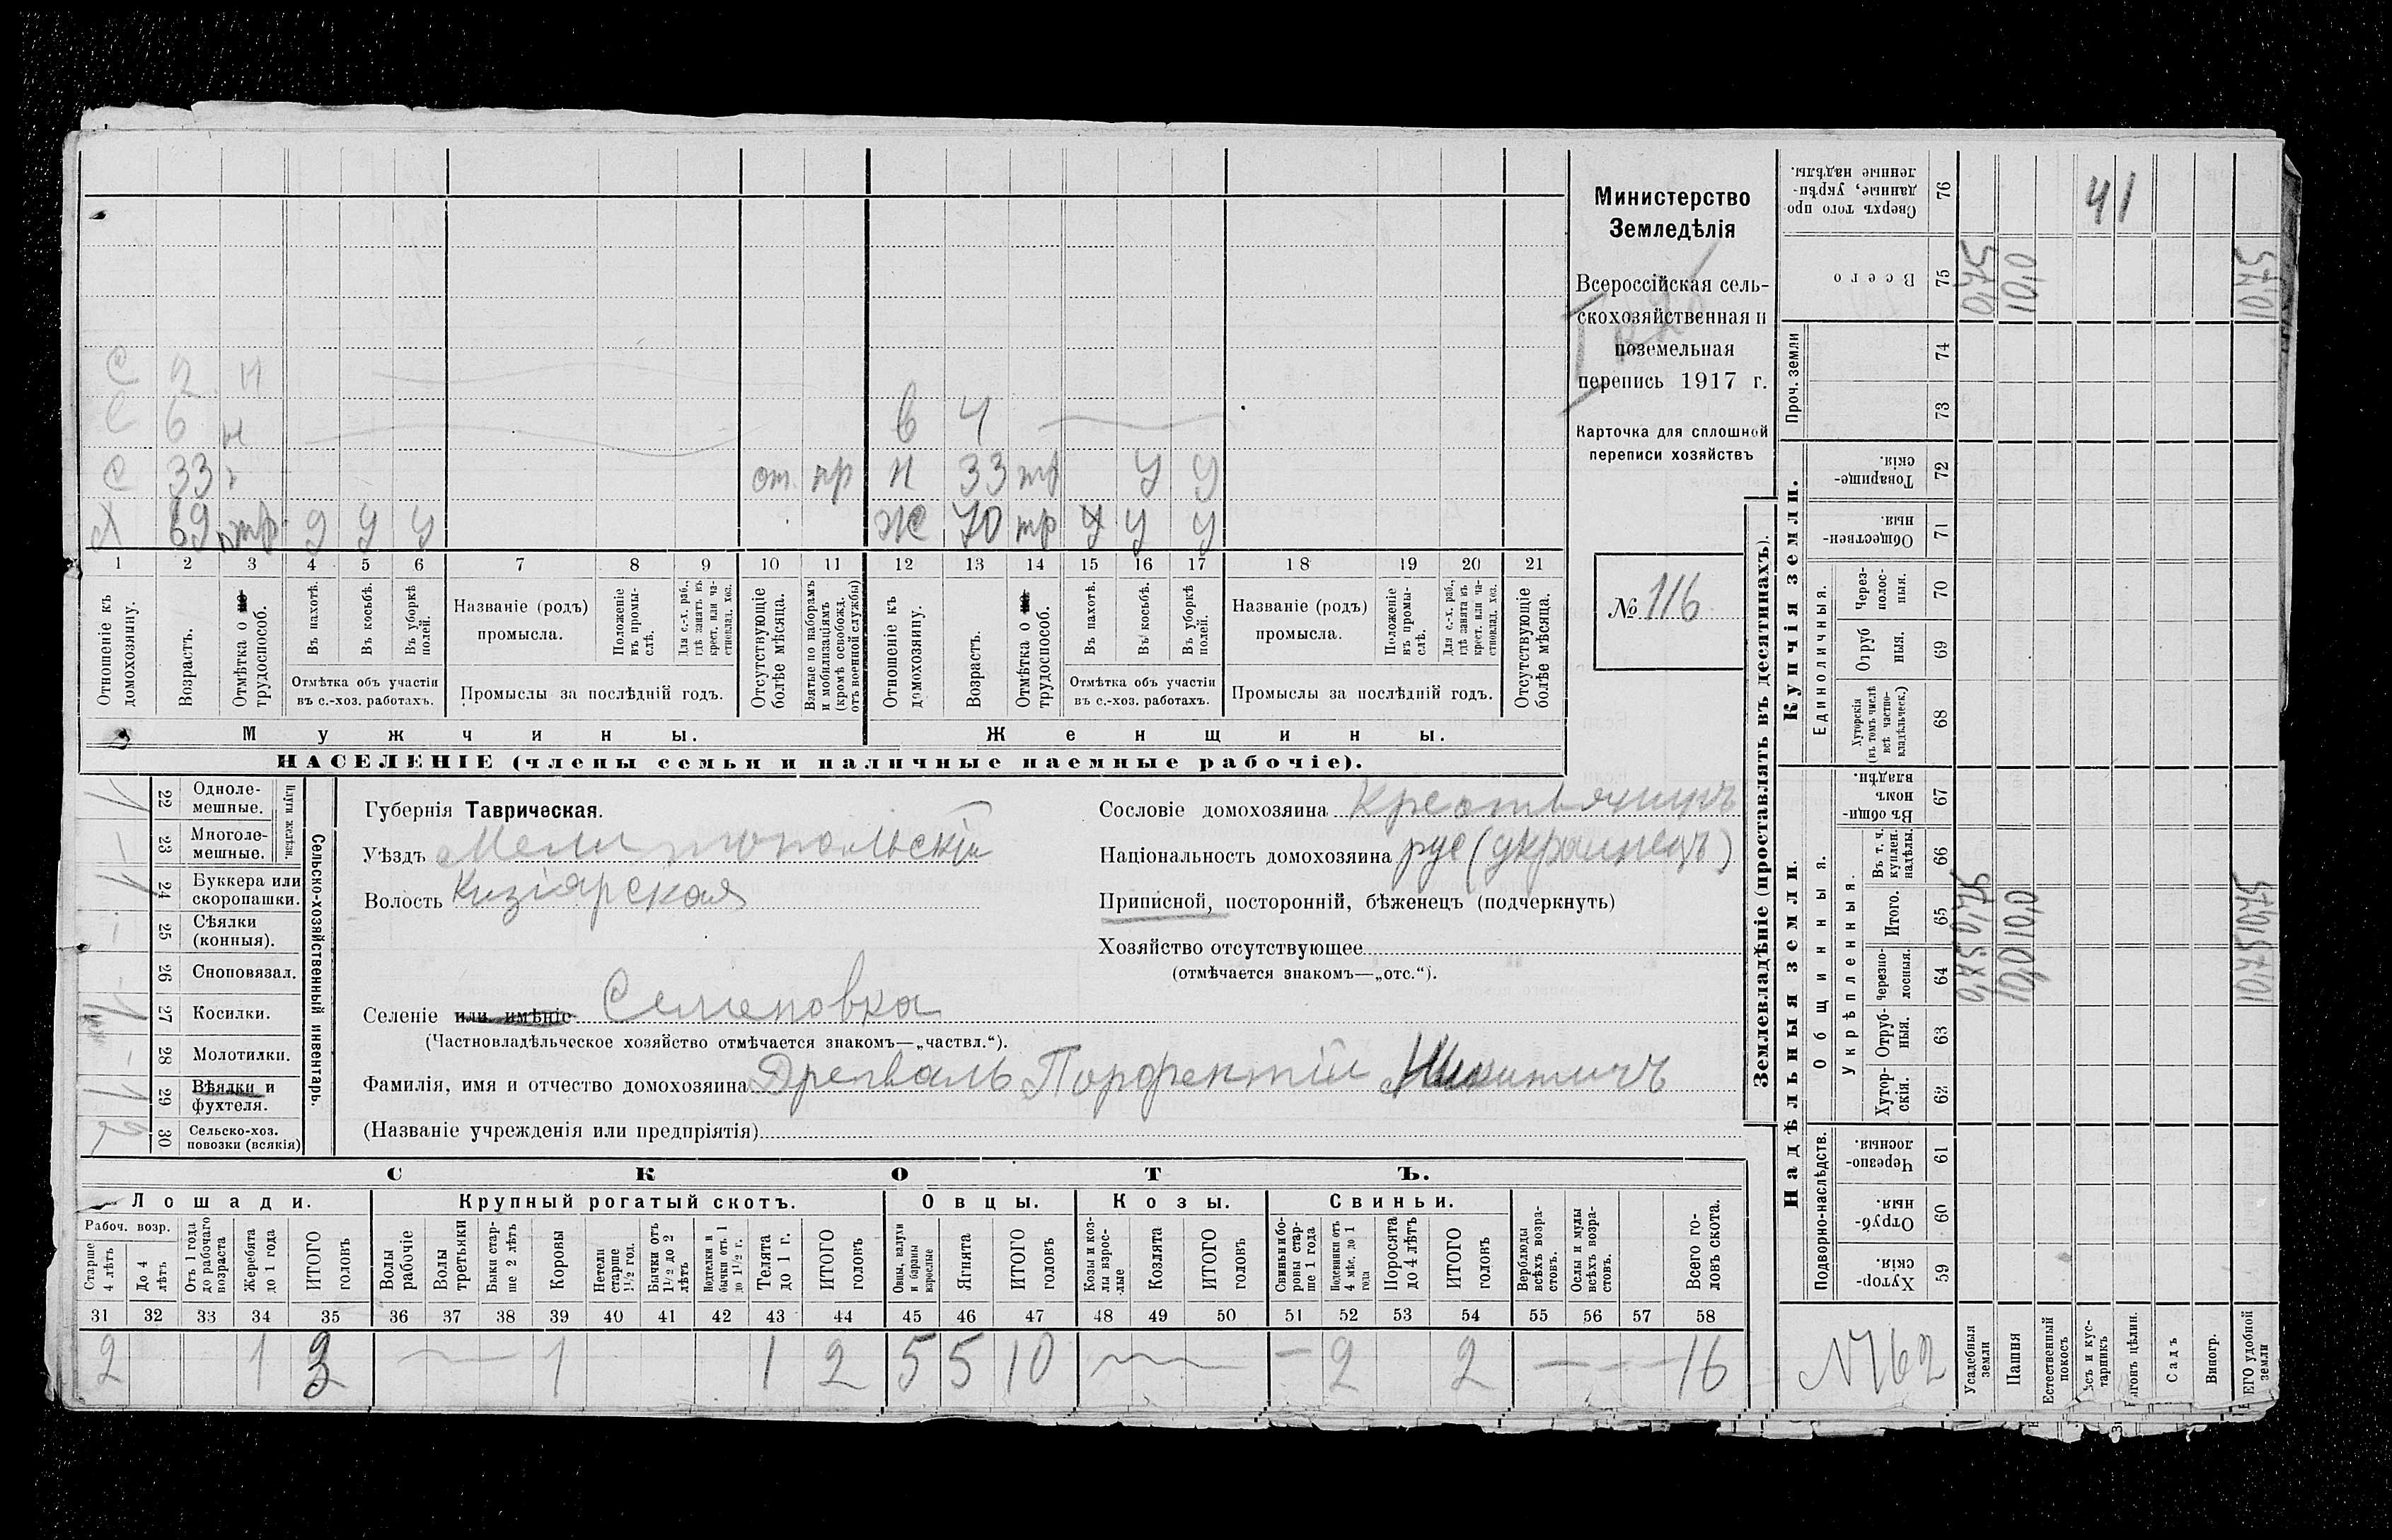 С 2 н
С 6 н в 4
С 33 от. пр н 33 тр у у
Х 69 тр у у у ж 70 тр у у у
1 2 3 4 5 6 7 8 9 10 11 12 13 14 15 16 17 18 19 20 21
Отношеніе къ домохозяину.
Возрастъ.
Отмѣтка о не трудоспособ.
Въ пахотѣ.
Въ косьбѣ.
Въ уборкѣ полей.
Отмѣтка объ участіи въ с.-хоз. работахъ.
Названіе (родъ) промысла.
Положеніе въ промыслѣ.
Для с.-х. раб., гдѣ занятъ въ крест. или частновлад. хоз.
Промыслы за послѣдній годъ.
Отсутствующіе болѣе мѣсяца.
Взятые по наборамъ и мобилизаціямъ (кромѣ освобожд. отъ военной службы)
Отношеніе къ домохозяину.
Возрастъ.
Отмѣтка о не трудоспособ.
Въ пахотѣ.
Въ косьбѣ.
Въ уборкѣ полей.
Отмѣтка объ участіи въ с.-хоз. работахъ.
Названіе (родъ) промысла.
Положеніе въ промыслѣ.
Для с.-х. раб., гдѣ занята въ крест. или частновлад. хоз.
Промыслы за послѣдній годъ.
Отсутствующіе болѣе мѣсяца.
Мужчины. Женщины.
НАСЕЛЕНІЕ (члены семьи и наличные наемные рабочіе).
Министерство
Земледѣлія
Всероссійская сель-
скохозяйственная и
поземельная
перепись 1917 г.
Карточка для сплошной
переписи хозяйствъ
№ 116
1 22 Одноле-мешные.
– 23 Многоле-мешные.
Плуги желѣзн.
1 24 Буккера или скоропашки.
– 25 Сѣялки (конныя).
– 26 Сноповязал.
1 27 Косилки.
– 28 Молотилки.
1 29 Вѣялки и фухтеля.
2 30 Сельско-хоз. повозки (всякія)
Сельско-хозяйственный инвентарь.
Губернія Таврическая.
Уѣздъ Мелитопольскій
Волость Кизіярская
Селеніе или имѣніе Семеновка
(Частновладѣльческое хозяйство отмѣчается знакомъ—„частвл.“).
Фамилія, имя и отчество домохозяина Дрепваль Порфентій Никитичъ
(Названіе учрежденія или предпріятія)
Сословіе домохозяина Крестьянинъ
Національность домохозяина рус (украинецъ)
Приписной, посторонній, бѣженецъ (подчеркнуть)
Хозяйство отсутствующее
(отмѣчается знакомъ—„отс.“).
СКОТЪ.
Лошади. Крупный рогатый скотъ. Овцы. Козы. Свиньи.
Рабоч. возр.
Старше 4 лѣтъ
До 4 лѣтъ
Отъ 1 года до рабочаго возраста
Жеребята до 1 года
ИТОГО головъ
Волы рабочіе
Волы третьяки
Быки старше 2 лѣтъ
Коровы
Нетели старше 1½ год.
Бычки отъ 1½ до 2 лѣтъ
Подтелки и бычки отъ 1 до 1½ г.
Телята до 1 г.
ИТОГО головъ
Овцы, валухи и бараны взрослые
Ягнята
ИТОГО головъ
Козы и козлы взрослые
Козлята
ИТОГО головъ
Свиньи и бороны старше 1 года
Подсвинки отъ 4 мѣс. до 1 года
Поросята до 4 лѣтъ
ИТОГО головъ
Верблюды всѣхъ возрастовъ.
Ослы и мулы всѣхъ возрастовъ.
Всего головъ скота.
31 32 33 34 35 36 37 38 39 40 41 42 43 44 45 46 47 48 49 50 51 52 53 54 55 56 57 58
2 1 3 — 1 1 2 5 5 10 — – 2 2 – – – 16
Землевладѣніе (проставлять въ десятинахъ).
Сверхъ того проданные, укрѣпленные надѣлы. 76 41
Всего 75 0,475 10,0 10,475
Проч. земли 74 73
Купчія земли.
Товарищескія. 72
Общественныя. 71
Единоличныя.
Черезполосныя. 70
Отрубныя. 69
Хуторскія (въ томъ числѣ всѣ частновладѣльческ.) 68
Надѣльныя земли.
Общинныя.
Въ общинномъ владѣн. 67
Укрѣпленныя.
Въ т. ч. куплен. надѣлы. 66
Итого. 65 0,475 10,0 10,475
Черезполосныя. 64 0,475 10,0 10,475
Отрубныя. 63
Хуторскія. 62
Подворно-наслѣдств.
Черезполосныя. 61
Отрубныя. 60
Хуторскія. 59
№ 62
Усадебныя земли
Пашня
Естественный покосъ
ѣсъ и кустарникъ
ыгонъ цѣлин.
Садъ
Виногр.
ЕГО удобной земли